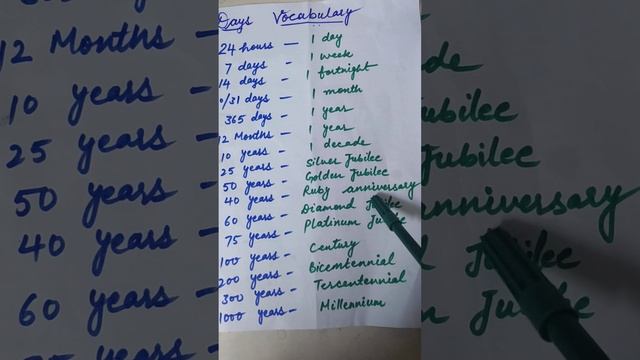 Days Vocabulary
24 hours — 1 day
7 days — 1 week
14 days — 1 fortnight
0/31 days — 1 month
365 days — 1 year
12 Months — 1 year
10 years — 1 decade
25 years — Silver Jubilee
50 years — Golden Jubilee
40 years — Ruby anniversary
60 years — Diamond Jubilee
75 years — Platinum Jubilee
100 years — Century
200 years — Bicentennial
300 years — Tercentennial
1000 years — Millennium